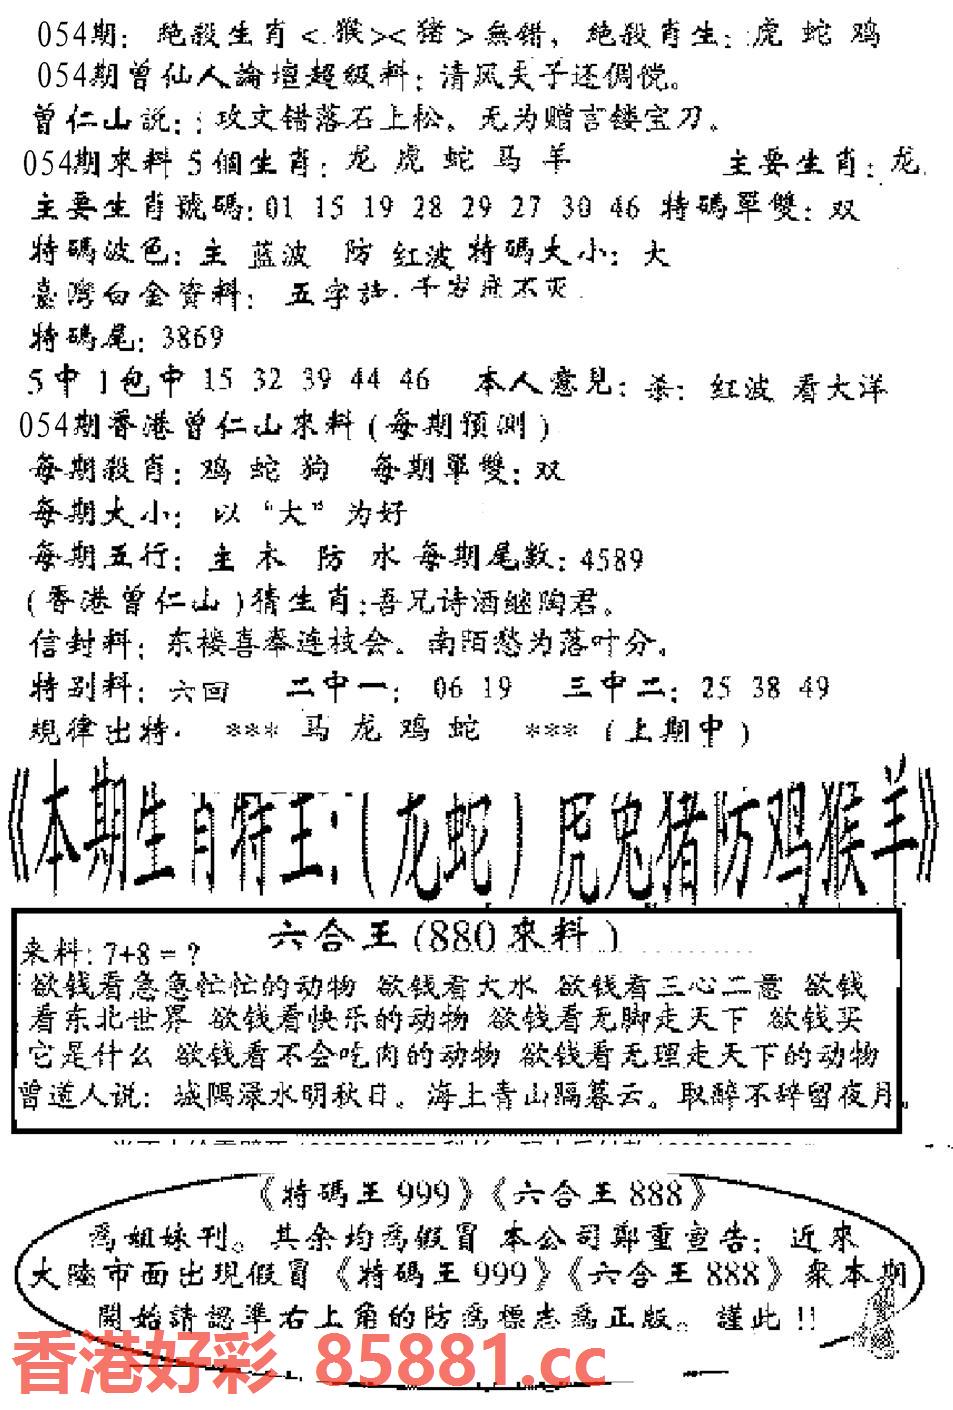 054期: 絕殺生肖<.猴><猪>無錯, 絕殺肖生:虎 蛇 鸡
054期曾仙人論壇超級料:清风天子还倜傥。
曾仁山説::攻文错落石上松。无为赠言镂宝刀。
054期來料5個生肖:龙 虎 蛇 马 羊 主要生肖:龙
主要生肖號碼:01 15 19 28 29 27 30 46 特碼單雙:双
特碼波色:主 蓝波 防 红波 特碼大小:大
臺灣白金資料: 五字詩.千岁底不灭.
特碼尾:3869
5中1包中 15 32 39 44 46 本人意見:杀:红波 看大洋
054期香港曾仁山來料(每期預測)
每期殺肖:鸡 蛇 狗 每期單雙:双
每期大小: 以“大”为好
每期五行: 主 木 防 水 每期尾数:4589
(香港曾仁山)猜生肖:吾兄诗酒继陶君。
信封料: 东楼喜奉连枝会。南陌愁为落叶分。
特别料:六回 二中一: 06 19 三中二:25 38 49
規律出特. *** 马 龙 鸡 蛇 *** (上期中)
《本期生肖特王:(龙蛇)虎兔猪防鸡猴羊》
六合王(880來料)
来料:7+8=?
欲钱看急急忙忙的动物 欲钱看大水 欲钱看三心二意 欲钱
看东北世界 欲钱看快乐的动物 欲钱看无脚走天下 欲钱买
它是什么 欲钱看不会吃肉的动物 欲钱看无理走天下的动物
曾道人说: 城隅渌水明秋日。海上青山隔暮云。取醉不辞留夜月。
《特碼王999》《六合王888》
爲姐妹刊。其余均爲假冒 本公司鄭重宣告:近來
大陸市面出現假冒《特碼王999》《六合王888》衆本期
開始請認準右上角的防爲標志爲正版。謹此!!
香港好彩 85881.cc